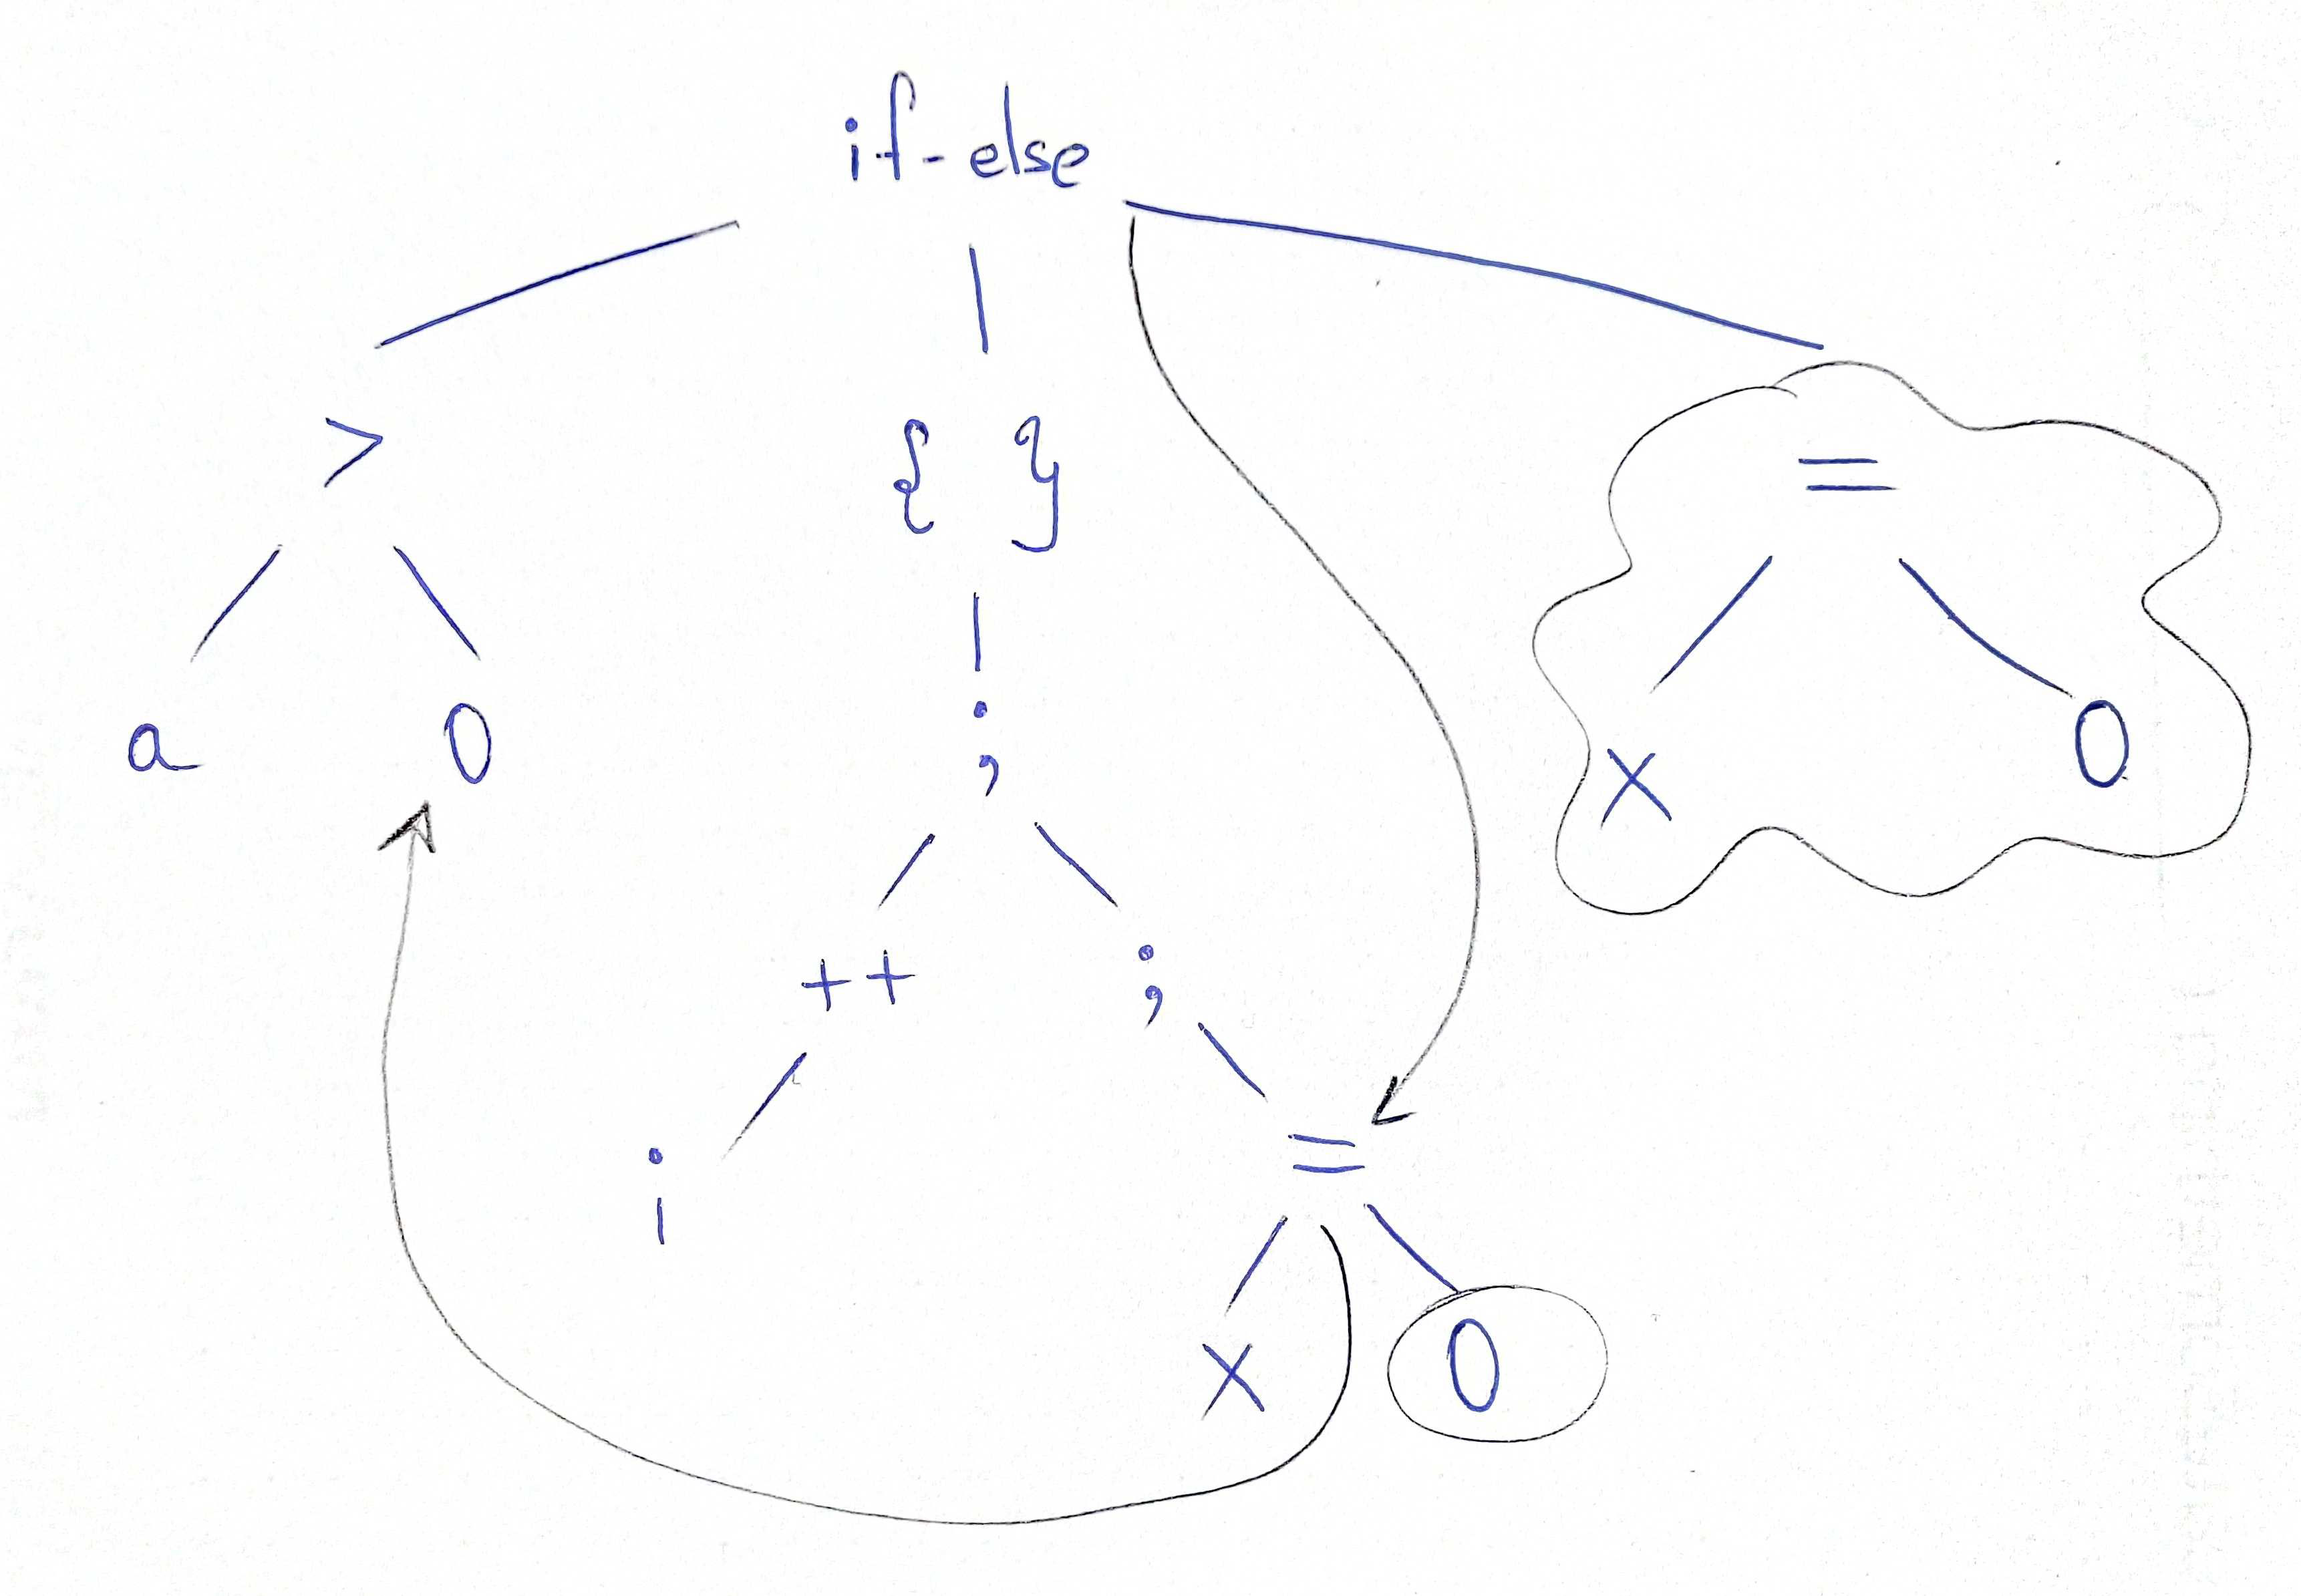 if-else
> { } =
a 0 ; x 0
++ ;
i =
x 0